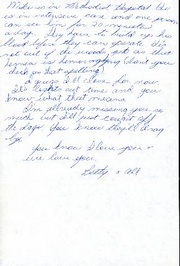 Mikus in Methodist Hospital He
is in intensive care and one person
can see him for 20 minutes
a day. They have to build up his
blood before they can operate. He's
not out of the woods yet as that
hernia is hemorraging (don't you
dick on that spelling)
I guess I'll close for now.
It's lights out time and you
know what that means
I'm already missing you so
much but I'll just count off
the days. You know they'll drag
by.
You know I love you &
we love you.
Betty & all